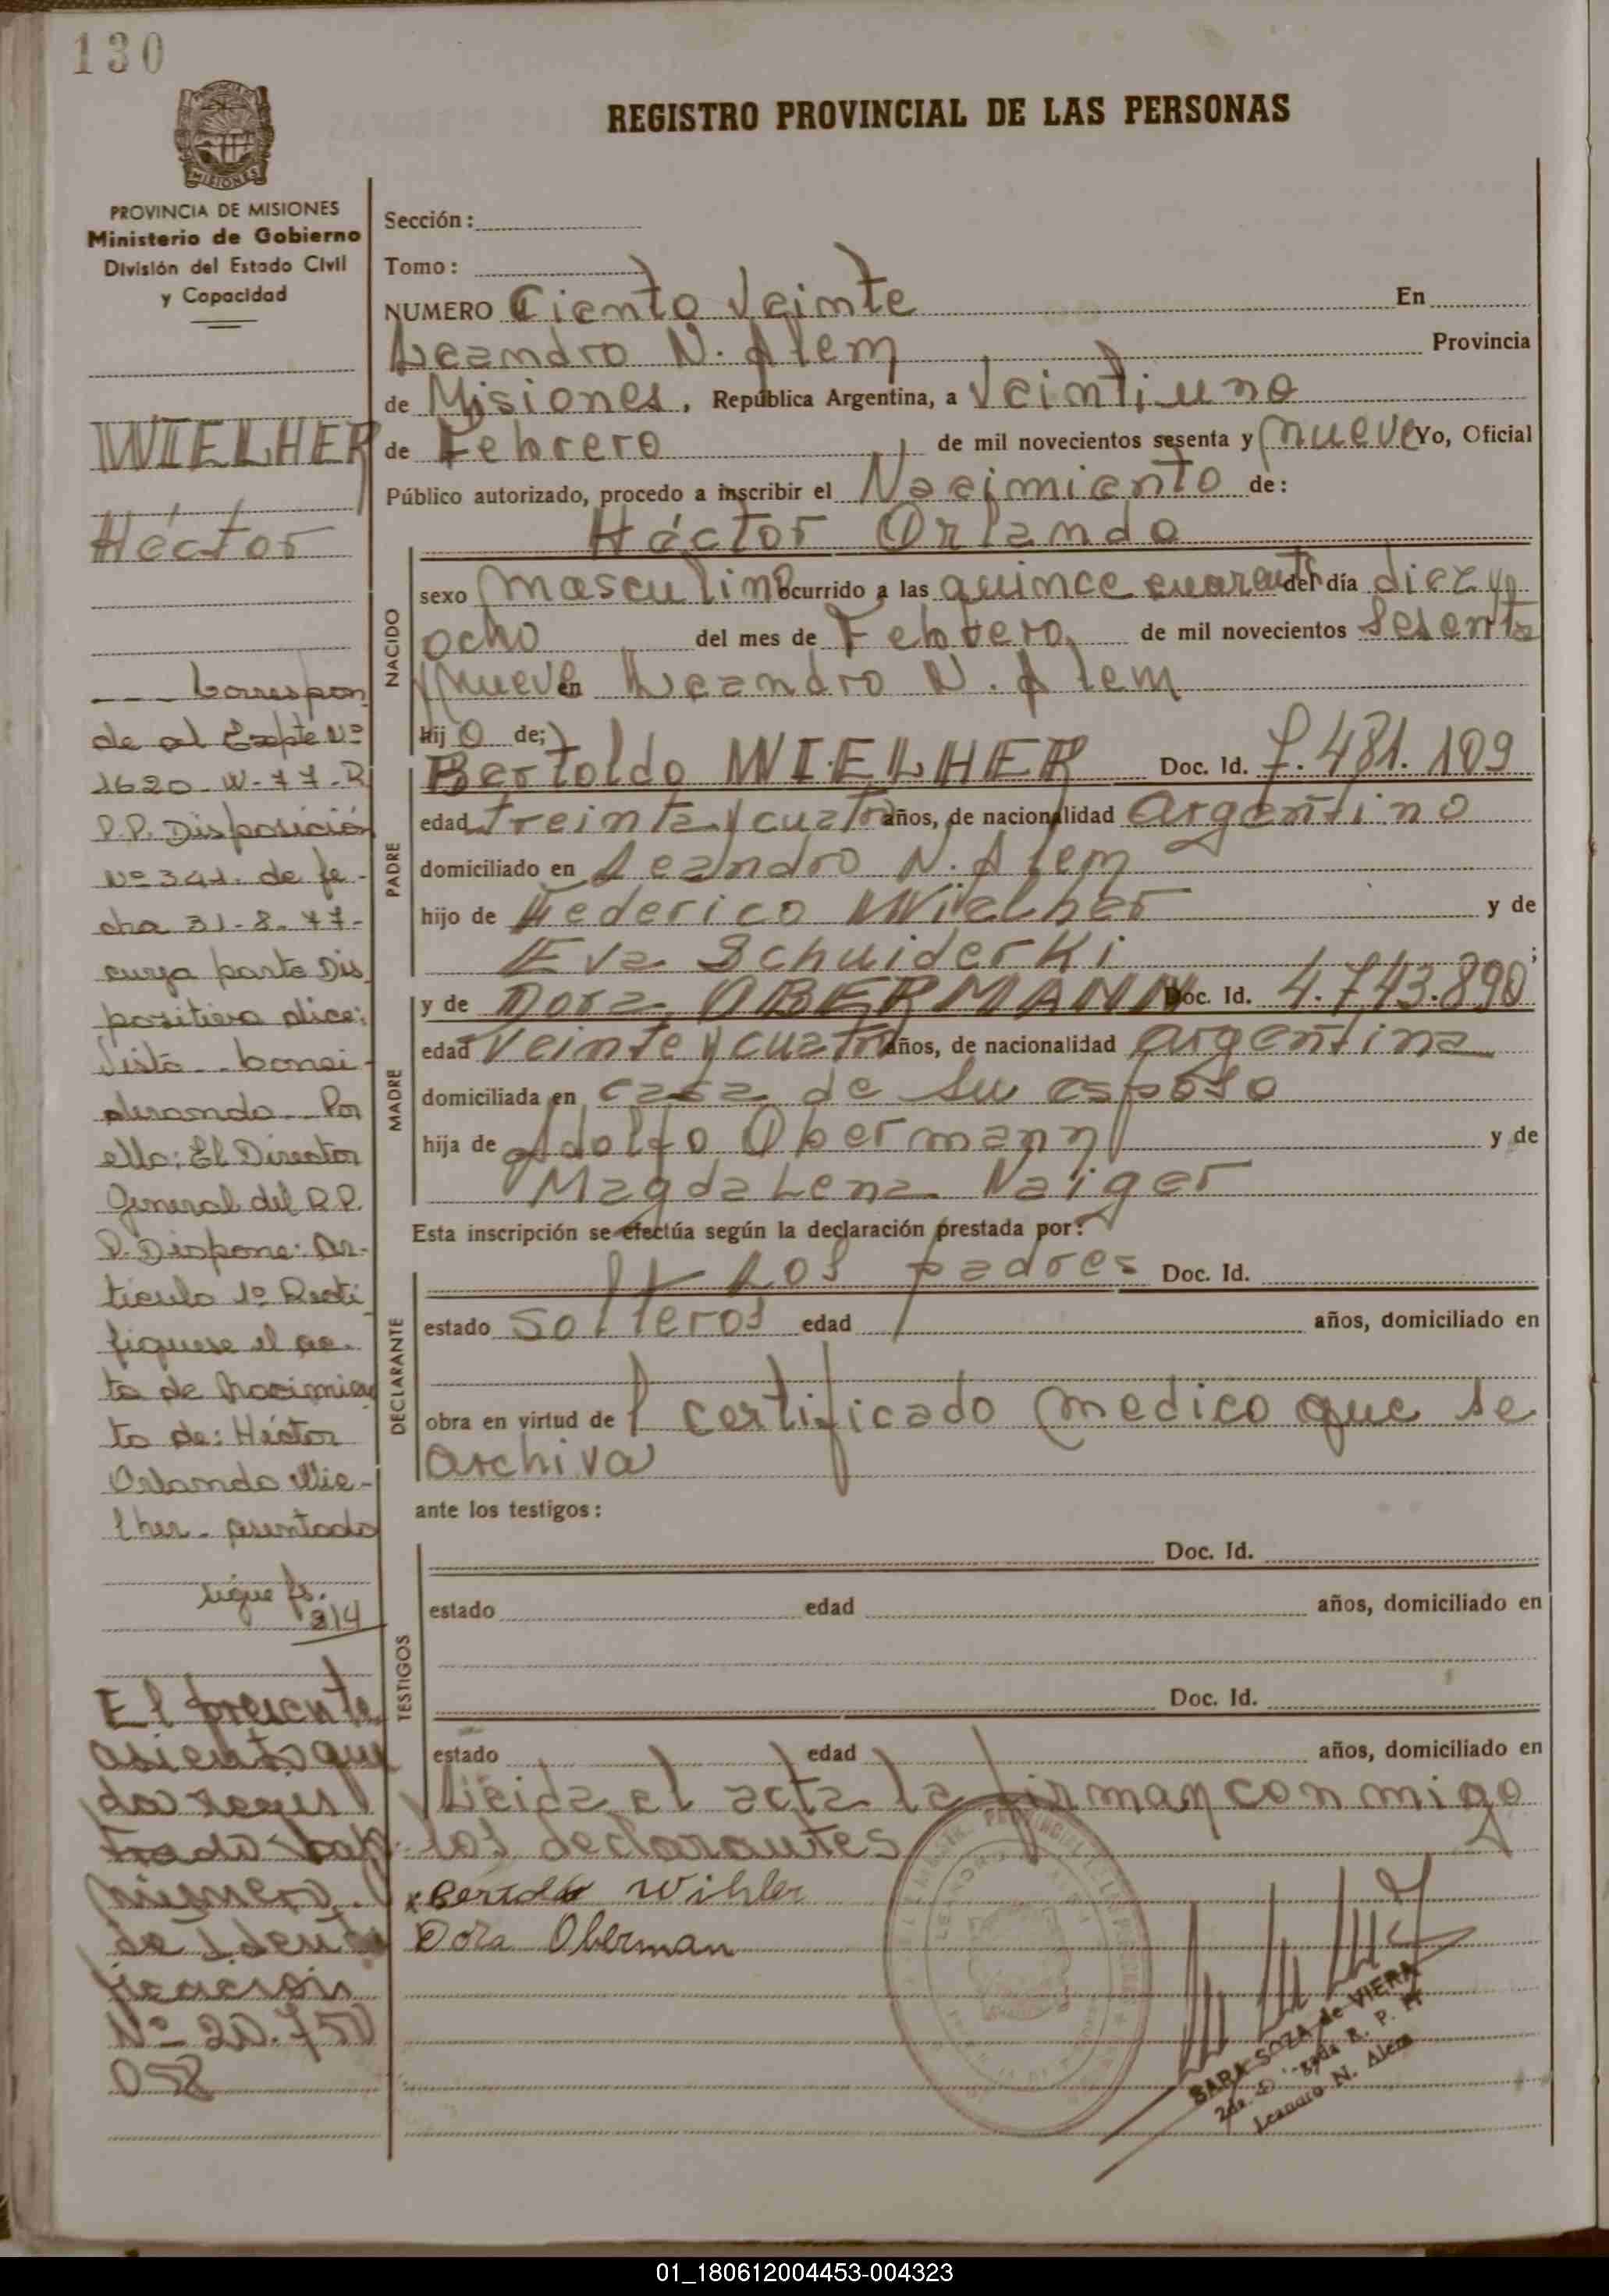 130
REGISTRO PROVINCIAL DE LAS PERSONAS
MISIONES
PROVINCIA DE MISIONES
Ministerio de Gobierno
División del Estado Civil
y Capacidad
WIELHER
Héctor
Correspon
de al Expte Nº
1620-W-77-R
P.P. Disposición
Nº 341. de fe-
cha 31-8-77-
cuya parte Dis
positiva dice:
Visto - - Consi-
derando - - Por
ello: El Director
General del R.P.
P. Dispone: Ar-
tículo 1º Recti
fiquese el ac-
ta de Nacimien
to de: Héctor
Orlando Wie-
lher - asentado
sigue fs.
314
El presente
asiento que
da regis
trado bajo
número
de Identi
ficación
Nº 20.750
058
Sección:
Tomo:
NUMERO Ciento Veinte En
Leandro N. Alem Provincia
de Misiones, República Argentina, a Veintiuno
de Febrero de mil novecientos sesenta y nueve Yo, Oficial
Público autorizado, procedo a inscribir el Nacimiento de:
Héctor Orlando
NACIDO
sexo masculino ocurrido a las quince cuarenta del día diez y
ocho del mes de Febrero de mil novecientos sesenta
y nueve en Leandro N. Alem
hijo de;
PADRE
Bertoldo WIELHER Doc. Id. 7.481.109
edad treinta y cuatro años, de nacionalidad argentino
domiciliado en Leandro N. Alem
hijo de Federico Wielher y de
Eva Schuiderki ;
MADRE
y de Dora OBERMANN Doc. Id. 4.743.890
edad Veinte y cuatro años, de nacionalidad argentina
domiciliada en casa de su esposo
hija de Adolfo Obermann y de
Magdalena Naiger
Esta inscripción se efectúa según la declaración prestada por:
DECLARANTE
Los padres Doc. Id.
estado solteros edad años, domiciliado en
obra en virtud del certificado medico que se
archiva
ante los testigos:
TESTIGOS
Doc. Id.
estado edad años, domiciliado en
Doc. Id.
estado edad años, domiciliado en
Leida el acta la firman con migo
los declarantes
Dora Oberman
SARA SOZA de VIERA
Leandro N. Alem
01_180612004453-004323